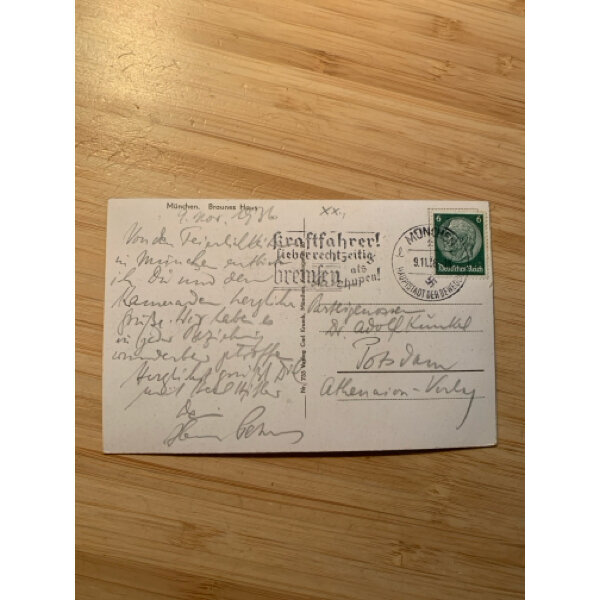 München. Braunes Haus
9. Nov. 1936
Von den Feierlichkeiten
in München
ich Dir und den
Kameraden herzliche
Grüße. Wir haben es
in jeder Beziehung
wunderbar getroffen.
Herzlichst grüßt Dich
mit Heil Hitler
Dein
Kraftfahrer!
lieber rechtzeitig
bremsen als
München
9.11.36
Hauptstadt der Bewegung
6 6
Deutsches Reich
Nr. 735 Verlag Carl
Parteigenossen
Dr. Adolf Kunkel
Potsdam
Athenaion-Verlag